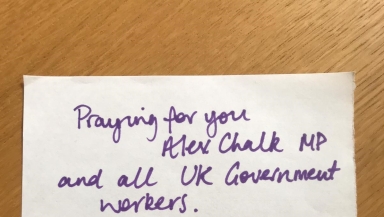 Praying for you
Alex Chalk MP
and all UK Government
workers.